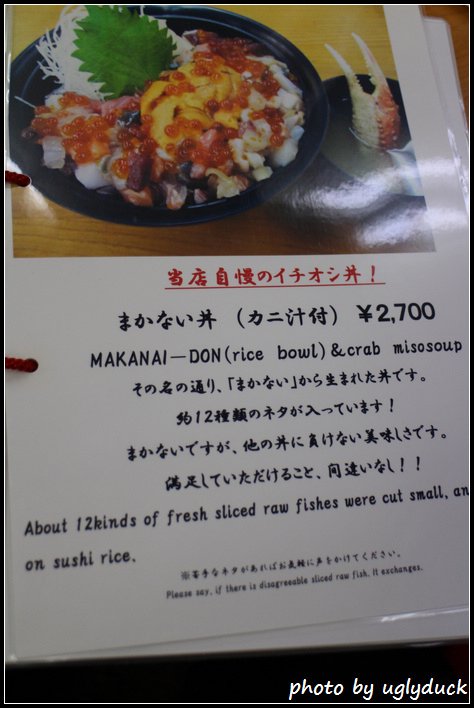 当店自慢のイチオシ丼！
まかない丼 （カニ汁付） ￥2,700
MAKANAI－DON(rice bowl)&crab misosoup
その名の通り、「まかない」から生まれた丼です。
約12種類のネタが入っています！
まかないですが、他の丼に負けない美味しさです。
満足していただけること、間違いなし！！
About 12kinds of fresh sliced raw fishes were cut small, an
on sushi rice.
※苦手なネタがあればお気軽に声をかけてください。
Please say, if there is disagreeable sliced raw fish. It exchanges.
photo by uglyduck